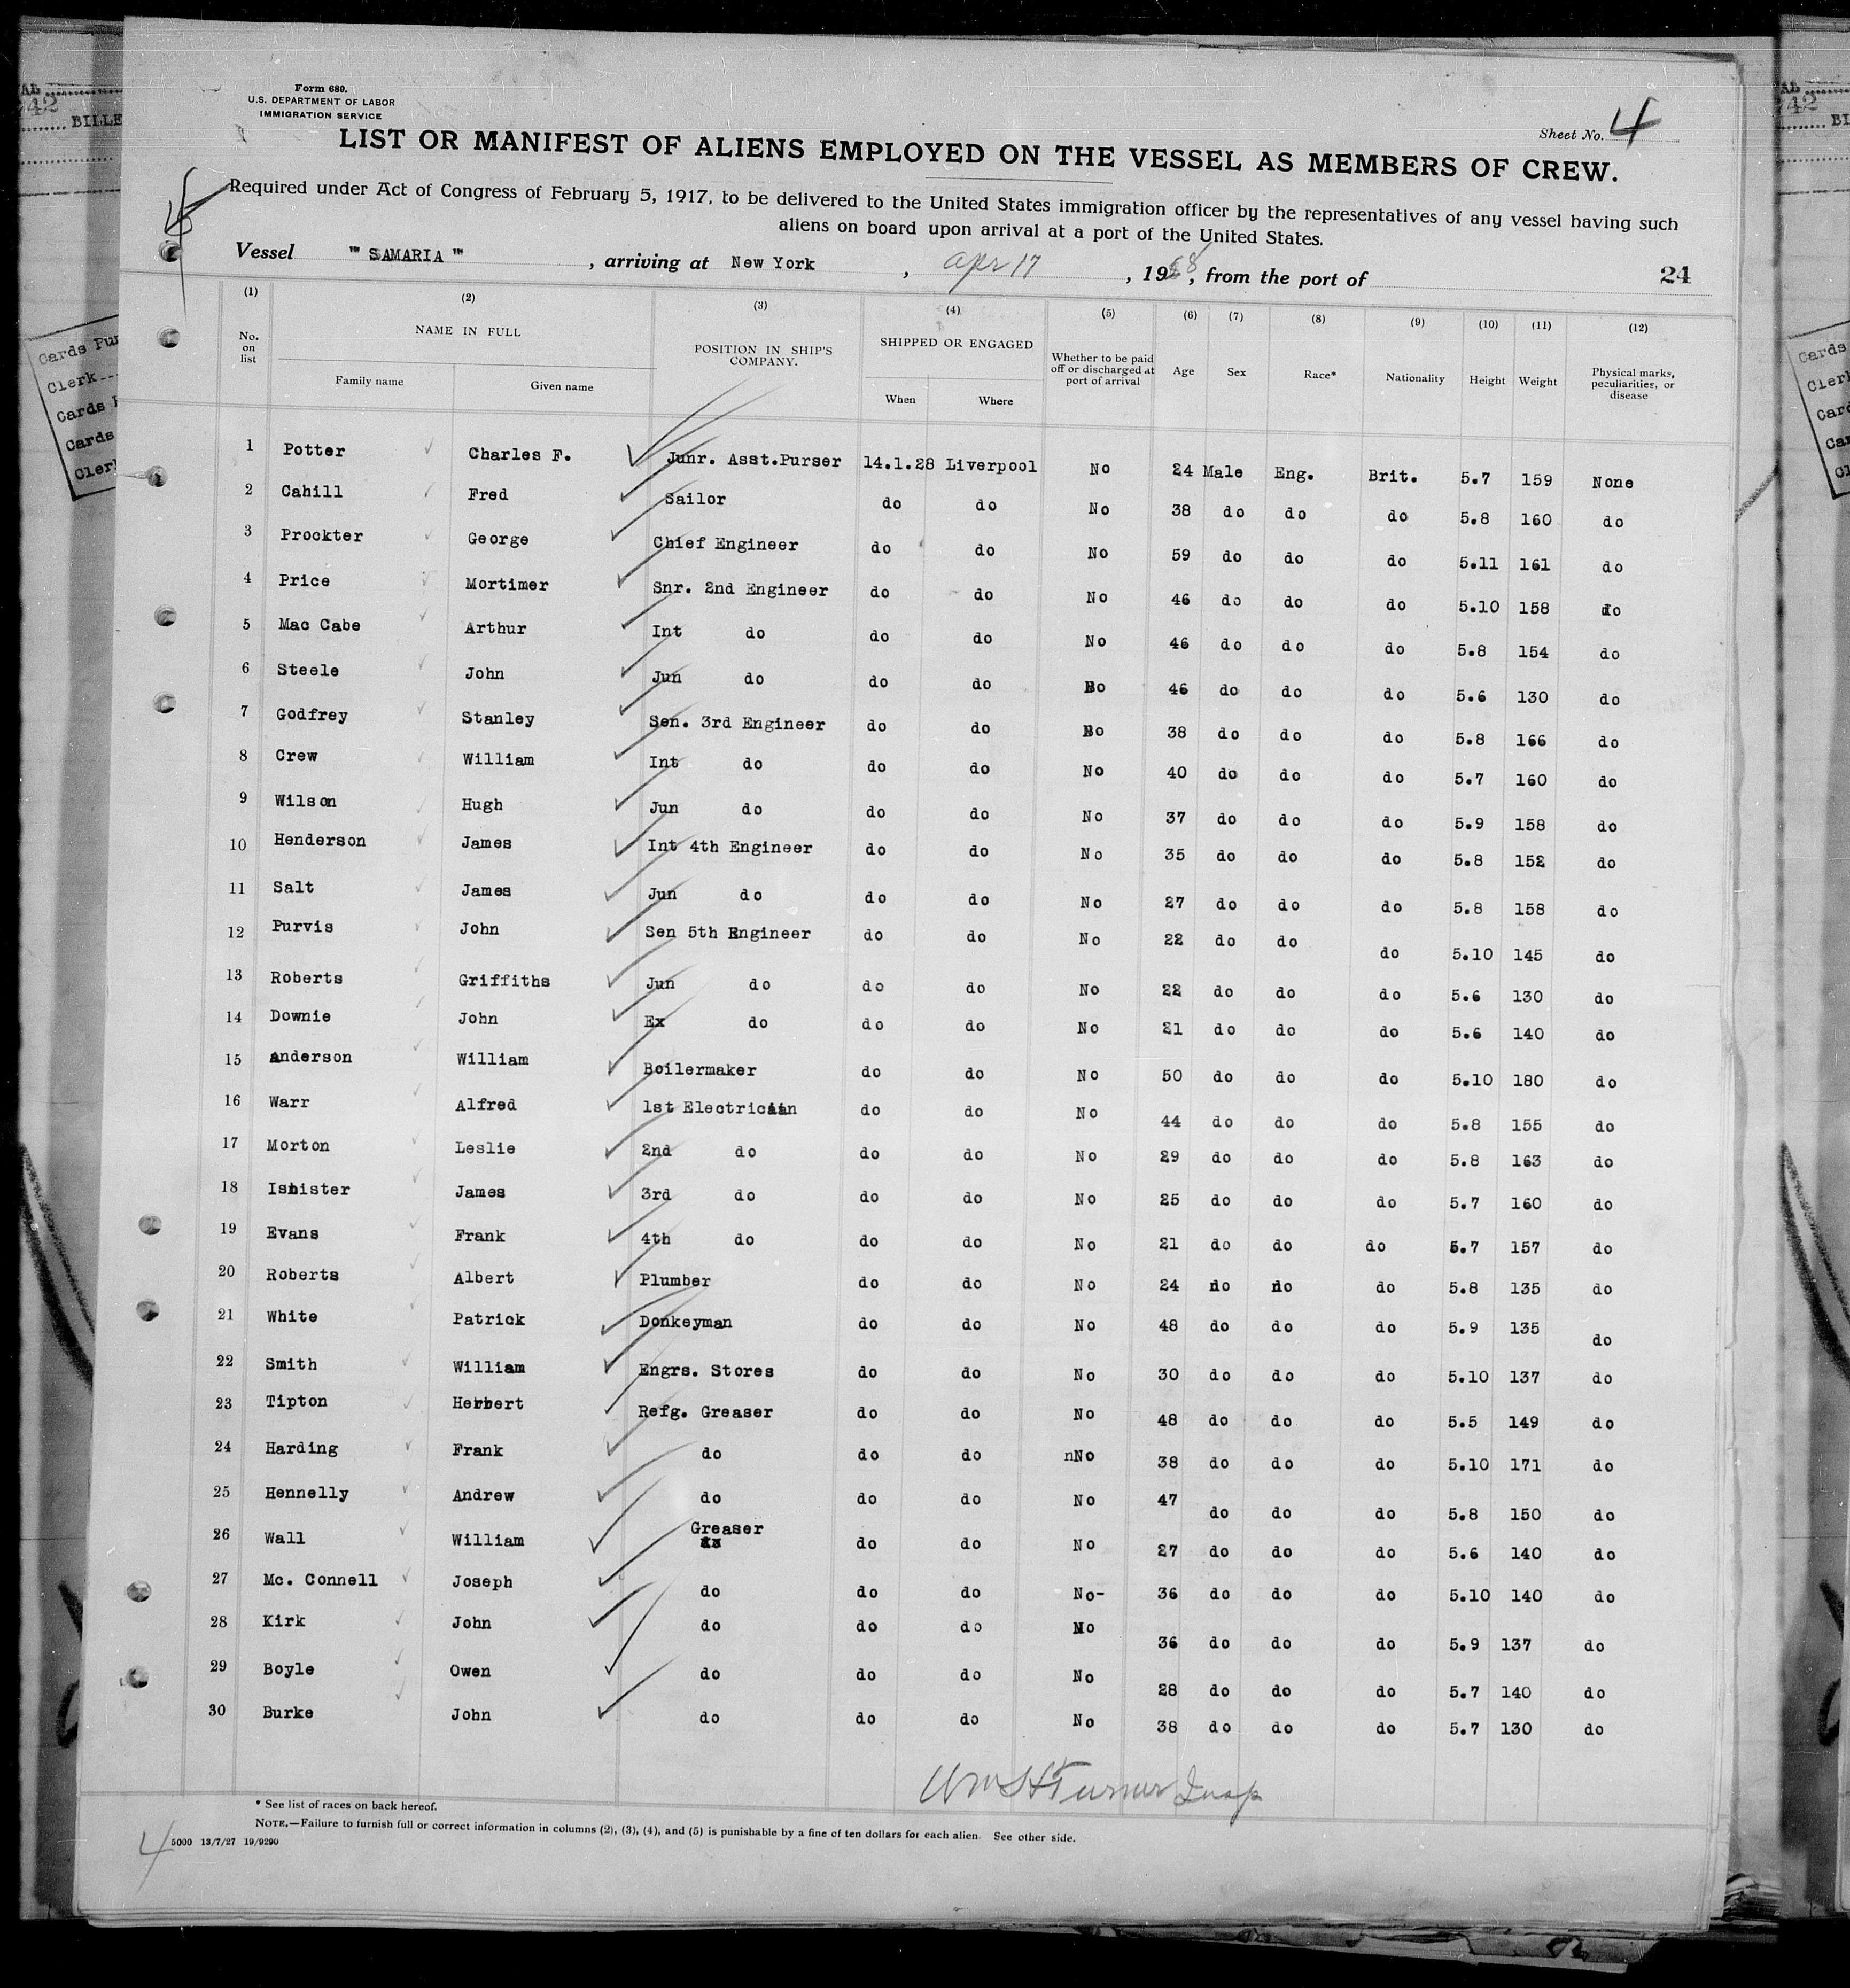 Form 680.
U.S. DEPARTMENT OF LABOR
IMMIGRATION SERVICE
Sheet No. 4
LIST OR MANIFEST OF ALIENS EMPLOYED ON THE VESSEL AS MEMBERS OF CREW.
Required under Act of Congress of February 5, 1917, to be delivered to the United States immigration officer by the representatives of any vessel having such
aliens on board upon arrival at a port of the United States.
Vessel "SAMARIA", arriving at New York, Apr 17, 1928, from the port of 24
(1) (2) (3) (4) (5) (6) (7) (8) (9) (10) (11) (12)
No. on list NAME IN FULL POSITION IN SHIP'S COMPANY. SHIPPED OR ENGAGED Whether to be paid off or discharged at port of arrival Age Sex Race* Nationality Height Weight Physical marks, peculiarities, or disease
Family name Given name When Where
1 Potter Charles F. Junr. Asst.Purser 14.1.28 Liverpool No 24 Male Eng. Brit. 5.7 159 None
2 Cahill Fred Sailor do do No 38 do do do 5.8 160 do
3 Prockter George Chief Engineer do do No 59 do do do 5.11 161 do
4 Price Mortimer Snr. 2nd Engineer do do No 46 do do do 5.10 158 do
5 Mac Cabe Arthur Int do do do No 46 do do do 5.8 154 do
6 Steele John Jun do do do No 46 do do do 5.6 130 do
7 Godfrey Stanley Sen. 3rd Engineer do do No 38 do do do 5.8 166 do
8 Crew William Int do do do No 40 do do do 5.7 160 do
9 Wilson Hugh Jun do do do No 37 do do do 5.9 158 do
10 Henderson James Int 4th Engineer do do No 35 do do do 5.8 152 do
11 Salt James Jun do do do No 27 do do do 5.8 158 do
12 Purvis John Sen 5th Engineer do do No 22 do do do 5.10 145 do
13 Roberts Griffiths Jun do do do No 22 do do do 5.6 130 do
14 Downie John Ex do do do No 21 do do do 5.6 140 do
15 Anderson William Boilermaker do do No 50 do do do 5.10 180 do
16 Warr Alfred 1st Electrician do do No 44 do do do 5.8 155 do
17 Morton Leslie 2nd do do do No 29 do do do 5.8 163 do
18 Isbister James 3rd do do do No 25 do do do 5.7 160 do
19 Evans Frank 4th do do do No 21 do do do 5.7 157 do
20 Roberts Albert Plumber do do No 24 do do do 5.8 135 do
21 White Patrick Donkeyman do do No 48 do do do 5.9 135 do
22 Smith William Engrs. Stores do do No 30 do do do 5.10 137 do
23 Tipton Herbert Refg. Greaser do do No 48 do do do 5.5 149 do
24 Harding Frank do do do nNo 38 do do do 5.10 171 do
25 Hennelly Andrew do do do No 47 do do do 5.8 150 do
26 Wall William Greaser do do No 27 do do do 5.6 140 do
27 Mc. Connell Joseph do do do No- 36 do do do 5.10 140 do
28 Kirk John do do do No 36 do do do 5.9 137 do
29 Boyle Owen do do do No 28 do do do 5.7 140 do
30 Burke John do do do No 38 do do do 5.7 130 do
Wm H Turner Insp
* See list of races on back hereof.
NOTE.—Failure to furnish full or correct information in columns (2), (3), (4), and (5) is punishable by a fine of ten dollars for each alien. See other side.
4 5000 13/7/27 19/9290